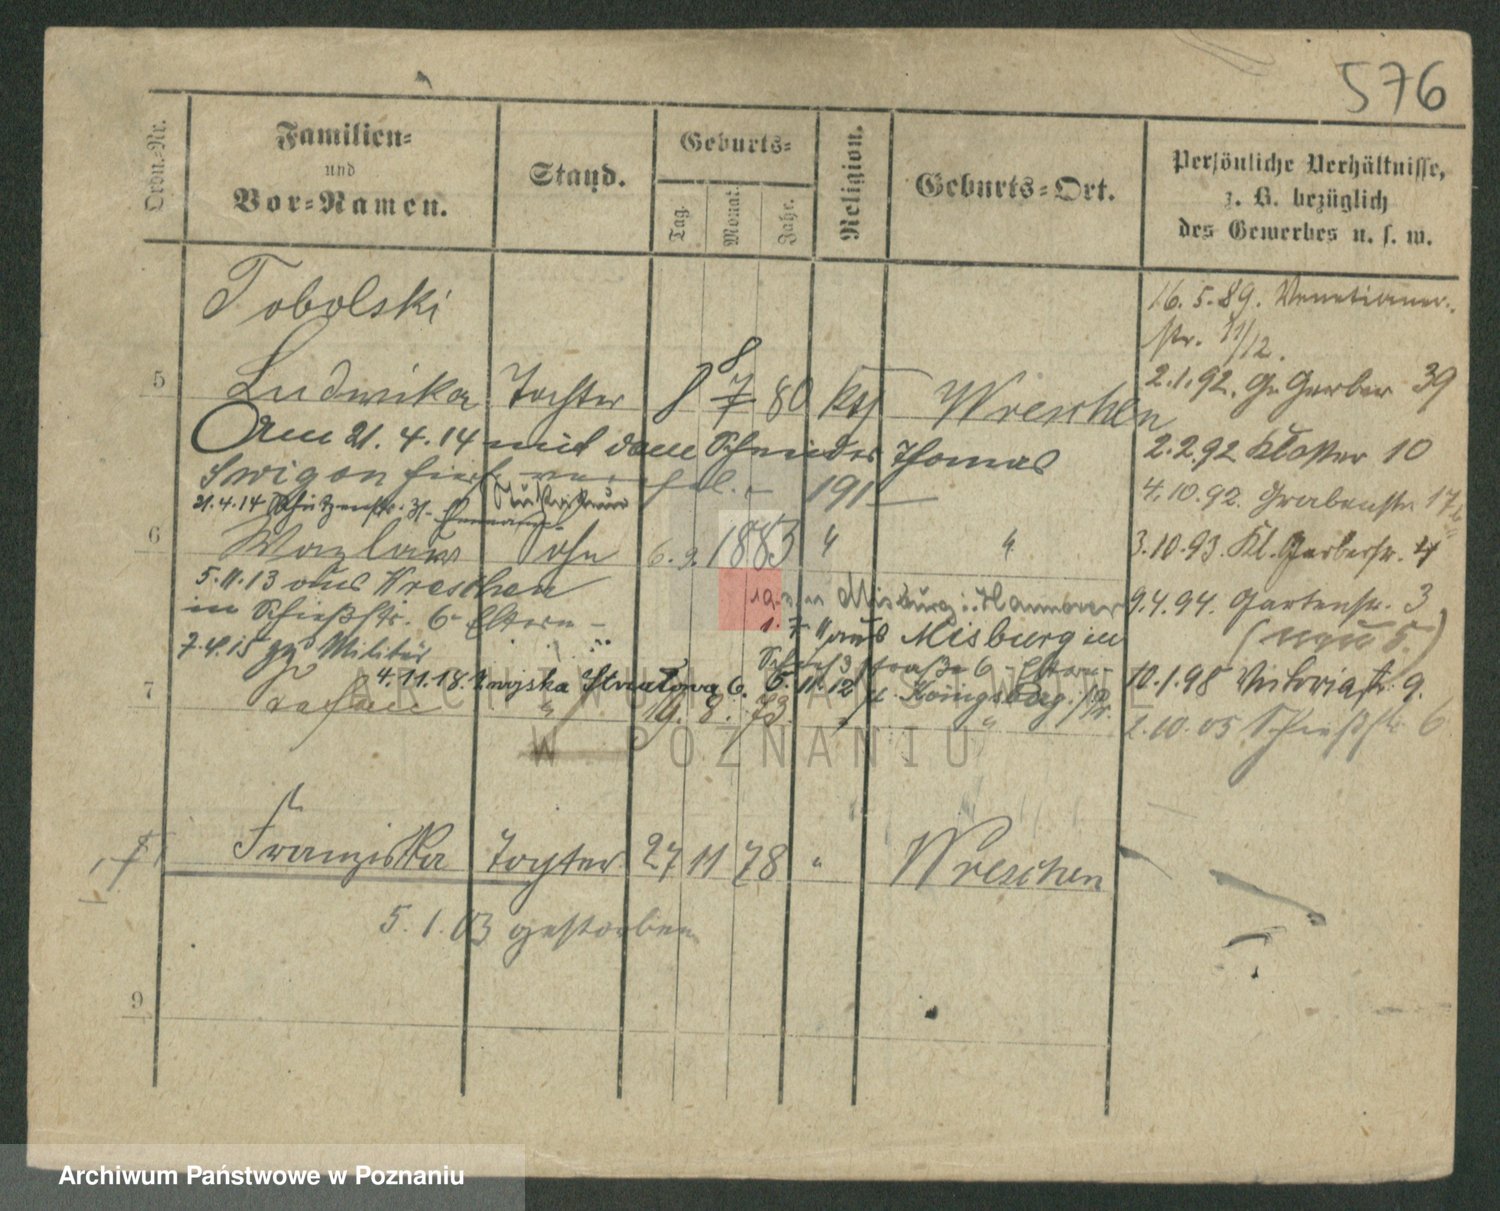 576
Ordn.-Nr.
Familien-
und
Vor-Namen.
Stand.
Geburts-
Tag.
Monat.
Jahr.
Religion.
Geburts-Ort.
Persönliche Verhältnisse,
z. B. bezüglich
des Gewerbes u. s. w.
Tobolski
16. 5. 89. Venetianer-
str. 11/12.
5 Ludwika Tochter 8 8 7 80 kth Wreschen
2.1.92. Gr. Gerber 39
Am 21. 4. 14 mit dem Schneider Thomas
2.2.92 Kloster 10
Swigon hier 191
4.10.92. Grabenstr. 17
21.4.14 Schützenstr. 31. Ehemann
6 Wazlaw Sohn 6. 9. 1883 " "
3.10.93. Kl. Gerberstr. 4
5.11.13 aus Wreschen
in Schießstr. 6 Eltern -
Misburg i. Hannover
9.4.94. Gartenstr. 3
(neu 5.)
7.4.15 zum Militär
1. 7. 11 aus Misburg in
Schießstraße 6 - Eltern -
4.11.18. z wojska Strzałowa 6. 5. 11. 12 n. Königsberg i/Pr.
10.1.98 Viktoriastr. 9.
7 Stefan " 19. 8. 73. " "
2.10.05 Schießstr. 6
Franziska Tochter 27 11 78 " Wreschen
5. 1. 03 gestorben
9
ARCHIWUM PAŃSTWOWE
W POZNANIU
Archiwum Państwowe w Poznaniu